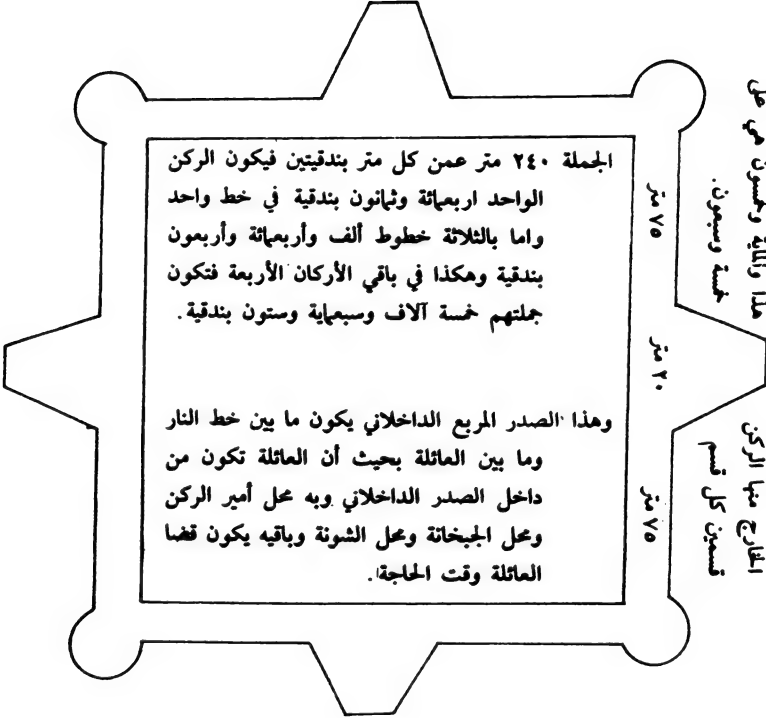 الجملة ٢٤٠ متر عمن كل متر بندقيتين فيكون الركن
الواحد اربعمائة وثمانون بندقية في خط واحد
واما بالثلاثة خطوط ألف وأربعمائة وأربعون
بندقية وهكذا في باقي الأركان الأربعة فتكون
جملتهم خمسة آلاف وسبعماية وستون بندقية.
وهذا الصدر المربع الداخلاني يكون ما بين خط النار
وما بين العائلة بحيث أن العائلة تكون من
داخل الصدر الداخلاني وبه محل أمير الركن
ومحل الجبخانة ومحل الشونة وباقيه يكون قضا
العائلة وقت الحاجة.
٧٥ متر
٢٠ متر
٧٥ متر
هذا والماية وخمسون هي على
خمسة وسبعون.
الخارج منها الركن
قسمين كل قسم